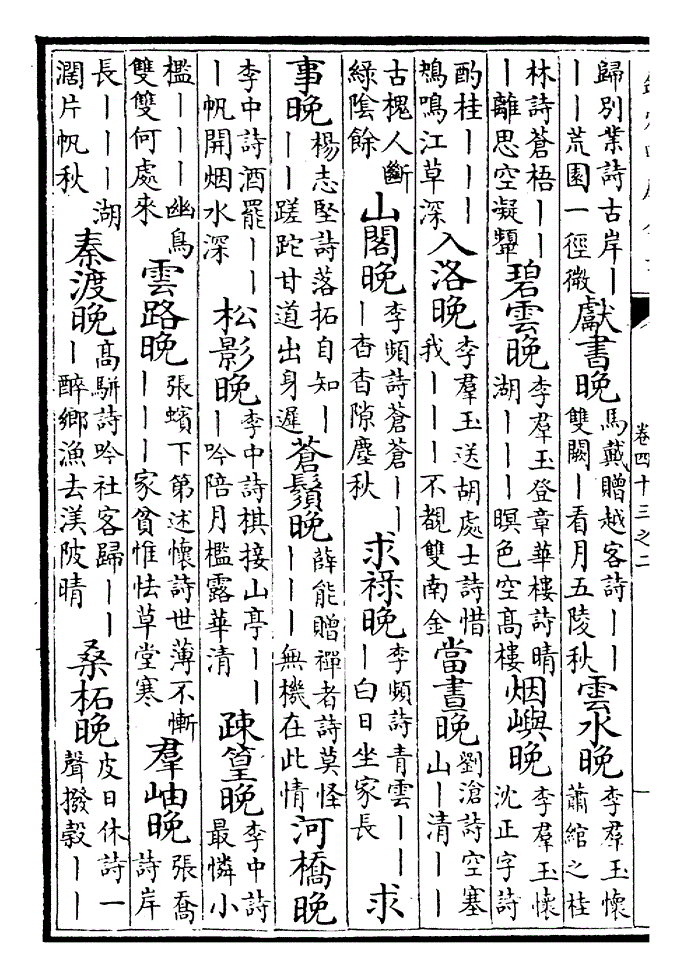 卷四十三之二
歸別業詩古岸｜
｜｜荒園一徑微
獻書晚
馬戴贈越客詩｜｜
雙闕｜看月五陵秋
雲水晚
李羣玉懷
蕭綰之桂
林詩蒼梧｜｜
｜離思空凝顰
碧雲晚
李羣玉登章華樓詩晴
湖｜｜｜暝色空高樓
烟嶼晚
李羣玉懷
沈正字詩
酌桂｜｜｜
鴂鳴江草深
入洛晚
李羣玉送胡處士詩惜
我｜｜｜不覩雙南金
當晝晚
劉滄詩空塞
山｜清｜｜
古槐人斷
綠陰餘
山閣晚
李頻詩蒼蒼｜｜
｜杳杳隙塵秋
求祿晚
李頻詩青雲｜｜
｜白日坐家長
求
事晚
楊志堅詩落拓自知｜
｜｜蹉跎甘道出身遲
蒼鬚晚
薛能贈禪者詩莫怪
｜｜｜無機在此情
河橋晚
李中詩酒罷｜｜
｜帆開烟水深
松影晚
李中詩棋接山亭｜｜
｜吟陪月檻露華清
疎篁晚
李中詩
最憐小
檻｜｜｜幽鳥
雙雙何處來
雲路晚
張蠙下第述懷詩世薄不慚
｜｜｜家貧惟怯草堂寒
羣岫晚
張喬
詩岸
長｜｜｜湖
濶片帆秋
秦渡晚
高駢詩吟社客歸｜｜
｜醉鄉漁去渼陂晴
桑柘晚
皮日休詩一
聲撥穀｜｜